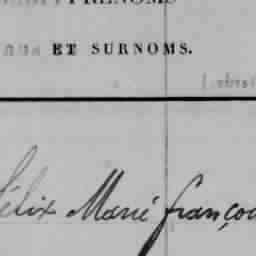 PRENOMS
ET SURNOMS.
Félix Marié françoi